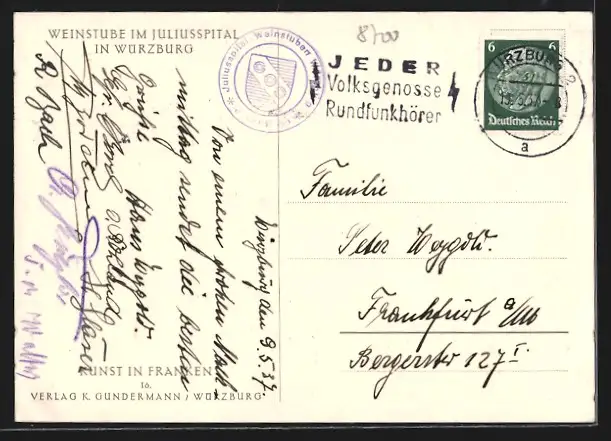 WEINSTUBE IM JULIUSSPITAL
IN WÜRZBURG
Juliusspital Weinstuben
8700
JEDER
Volksgenosse
Rundfunkhörer
WÜRZBURG 2
a
6 6
Deutsches Reich
Würzburg den 9.5.37.
Von einem frohen Nach-
mittag sendet die besten
Grüße
Hans Weygold.
R Bach
Familie
Peter Weygold.
Frankfurt a/M
Bergerstr 127 I.
KUNST IN FRANKEN
16.
VERLAG K. GUNDERMANN / WÜRZBURG